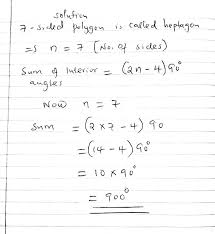 solution
7-sided polygon is called heptagon
=> n = 7 [No. of sides]
Sum of Interior = (2n-4)90°
angles
Now n = 7
Sum = (2x7-4) 90
= (14-4) 90°
= 10 x 90°
= 900°